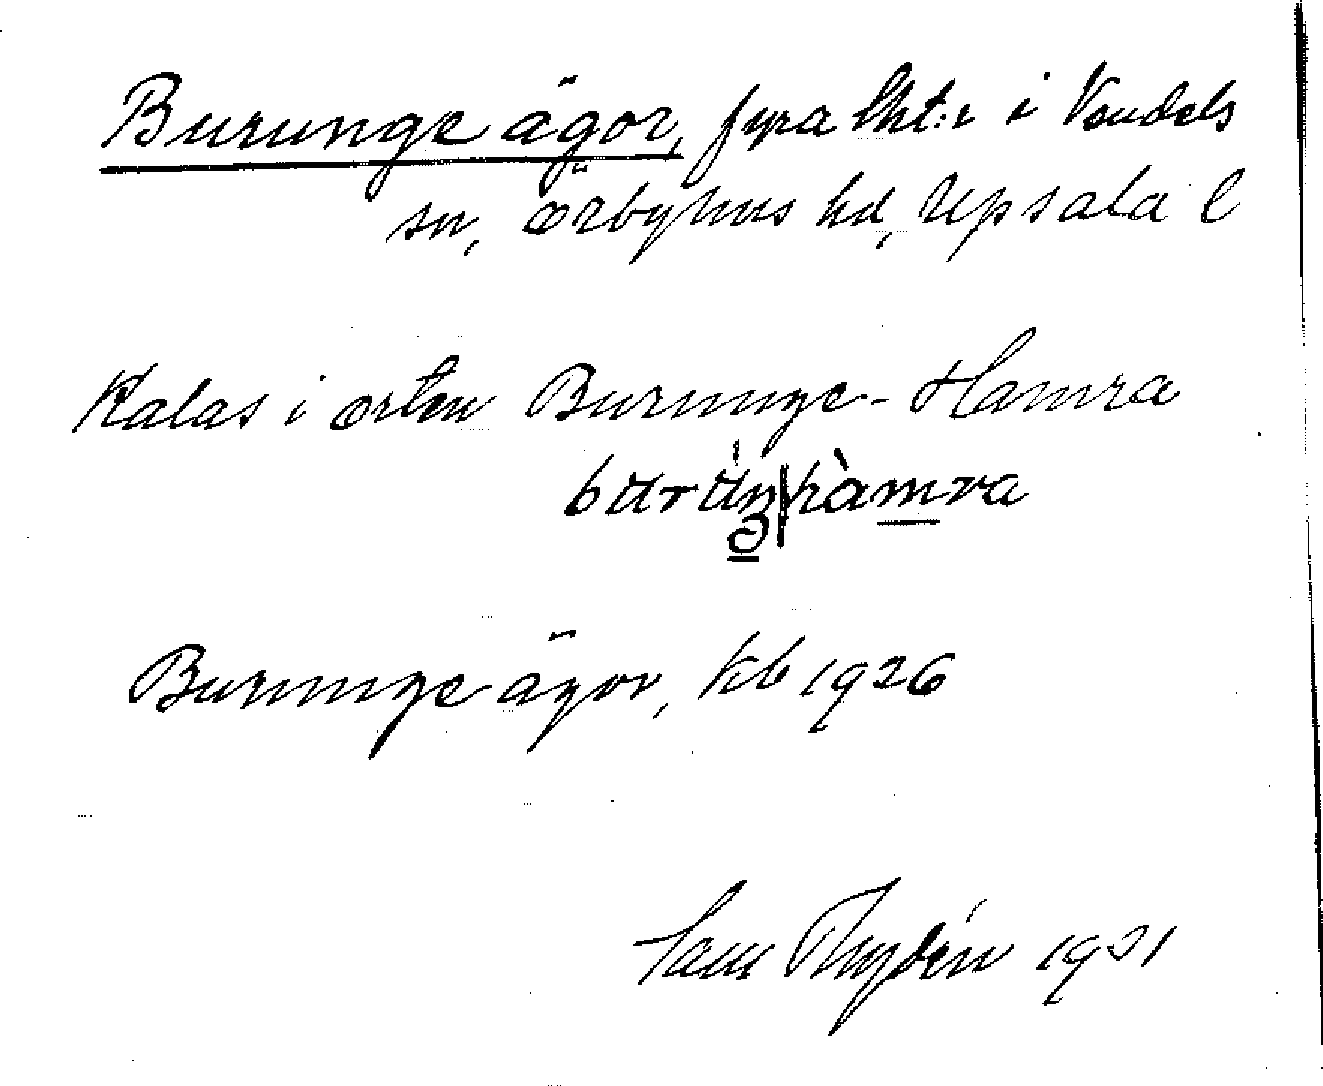 Burunge ägor, fyra lht:r i Vendels
sn, Örbyhus hd, Upsala l
Kalas i orten Burunge-Hamra
Burunge ägor, kb 1926
Sam Rhydén 1931